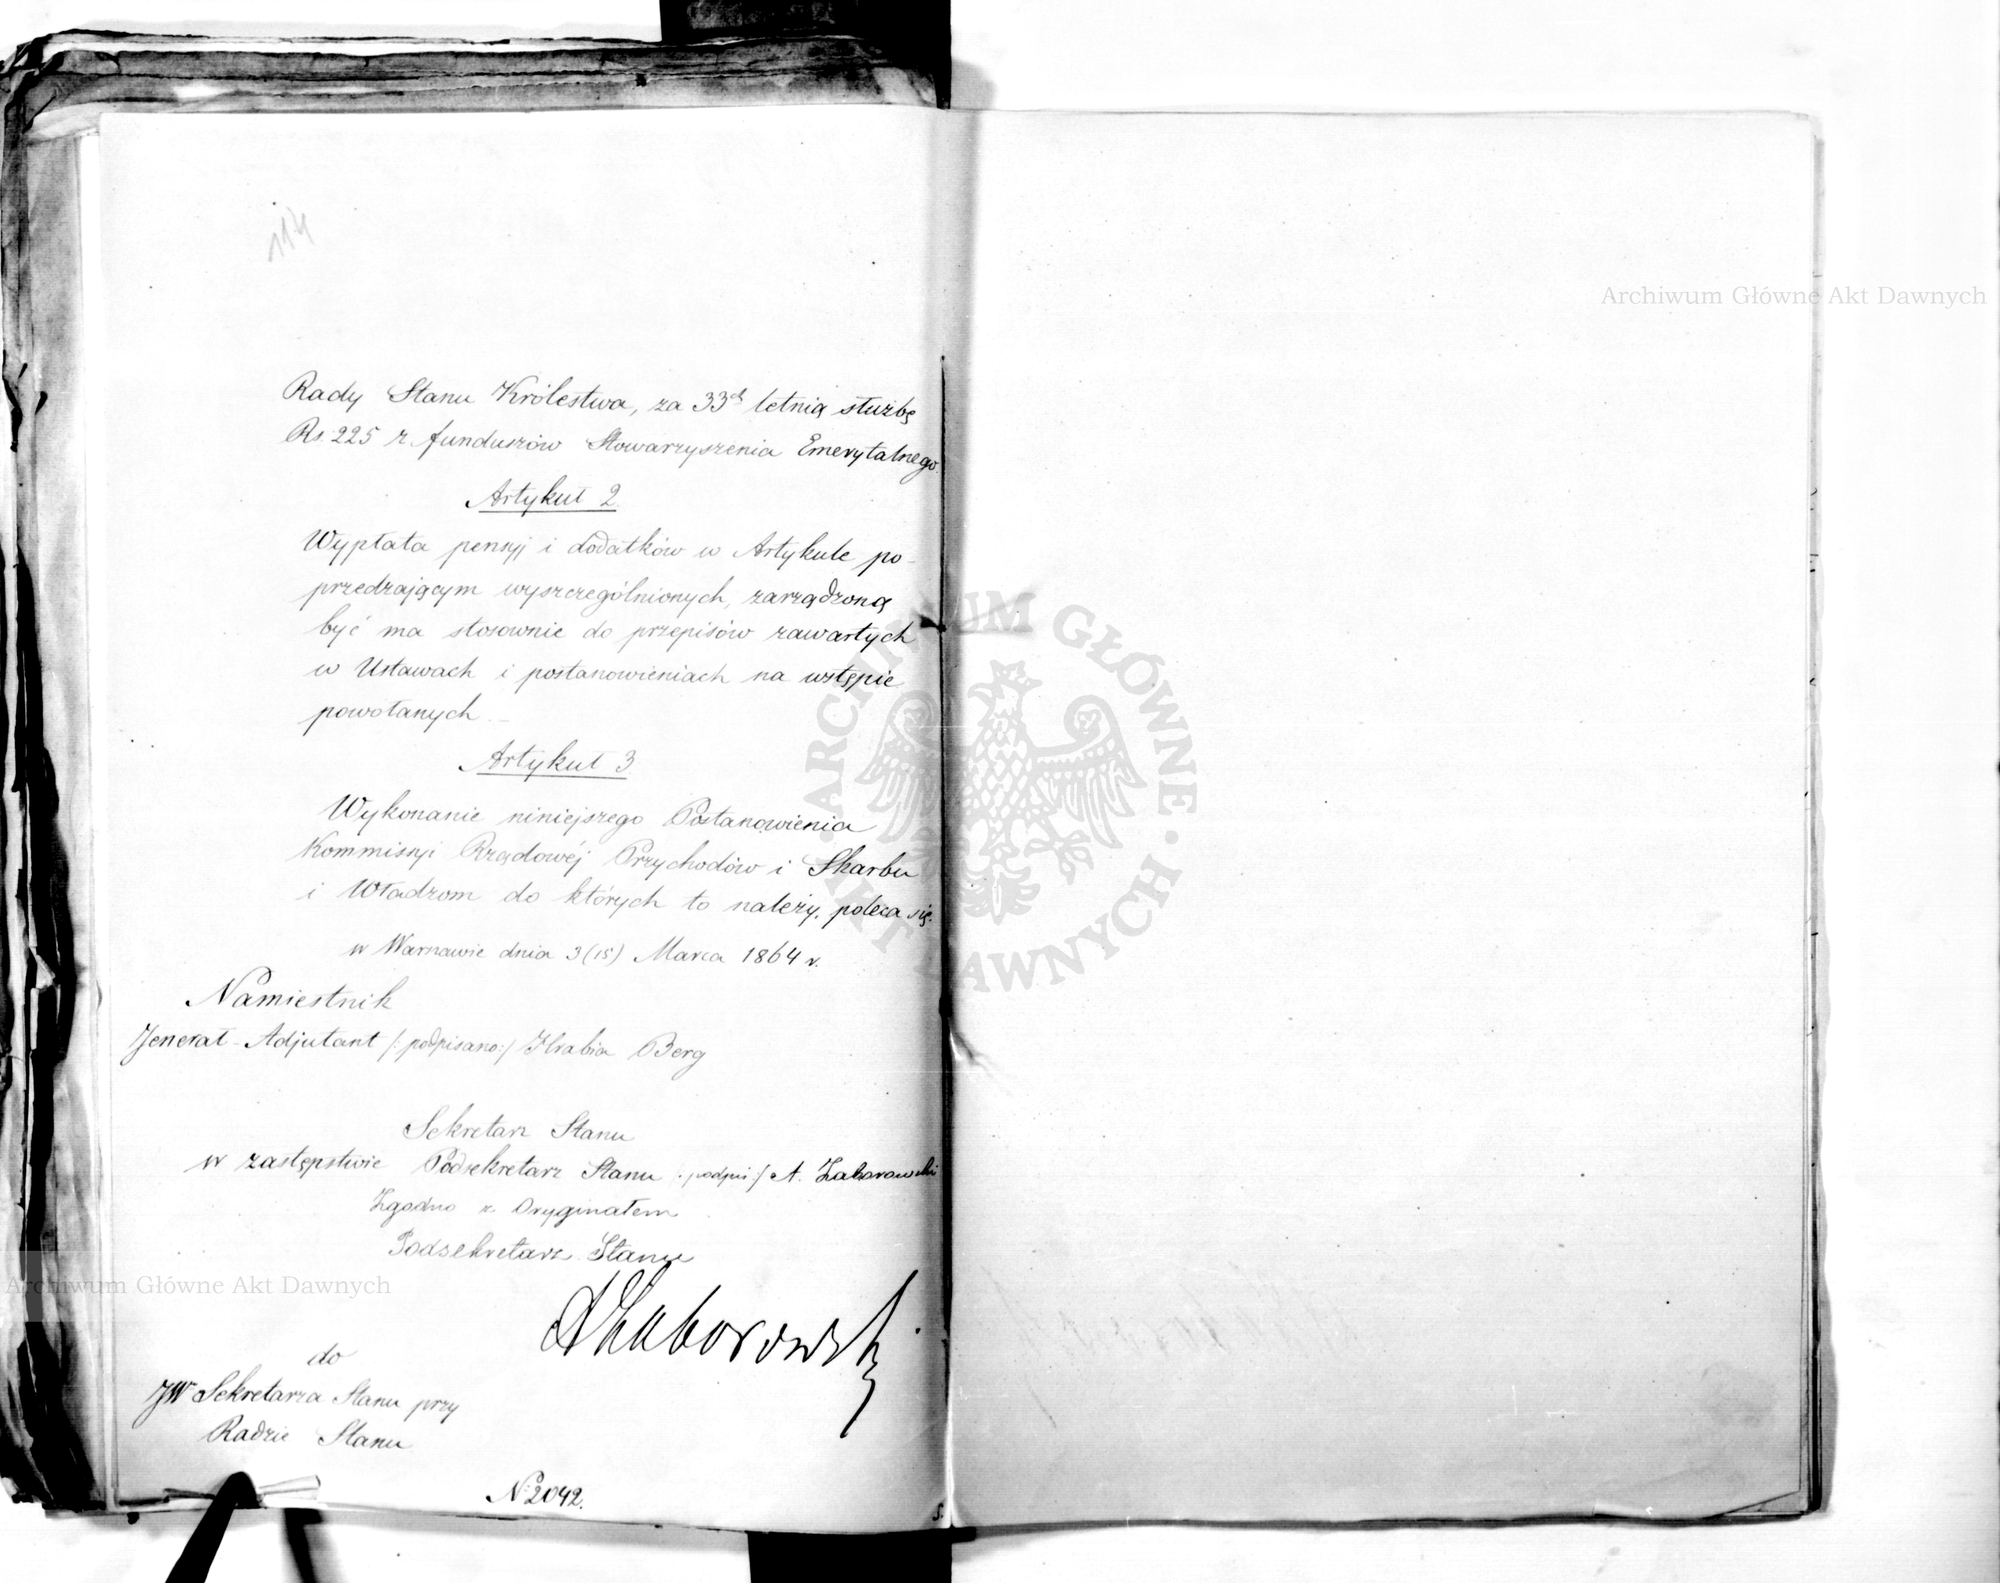 114
Rady Stanu Królestwa, za 33ch letnią służbę
Rs. 225 z funduszów Stowarzyszenia Emerytalnego.
Artykuł 2.
Wypłata pensyj i dodatków w Artykule po-
przedzającym wyszczególnionych, zarządzoną
być ma stosownie do przepisów zawartych
w Ustawach i postanowieniach na wstępie
powołanych. –
Artykuł 3
Wykonanie niniejszego Postanowienia
Kommissyi Rządowéj Przychodów i Skarbu
i Władzom do których to należy, poleca się.
w Warszawie dnia 3 (15) Marca 1864 r.
Namiestnik
Jenerał-Adjutant /:podpisano:/ Hrabia Berg
Sekretarz Stanu
w zastępstwie Podsekretarz Stanu /:podpis:/ A. Zaborowski
Zgodno z Oryginałem
Podsekretarz Stanu
AZaborowski
do
JW Sekretarza Stanu przy
Radzie Stanu
N: 2042.
Archiwum Główne Akt Dawnych
Archiwum Główne Akt Dawnych
ARCHIWUM GŁÓWNE · AKT DAWNYCH ·